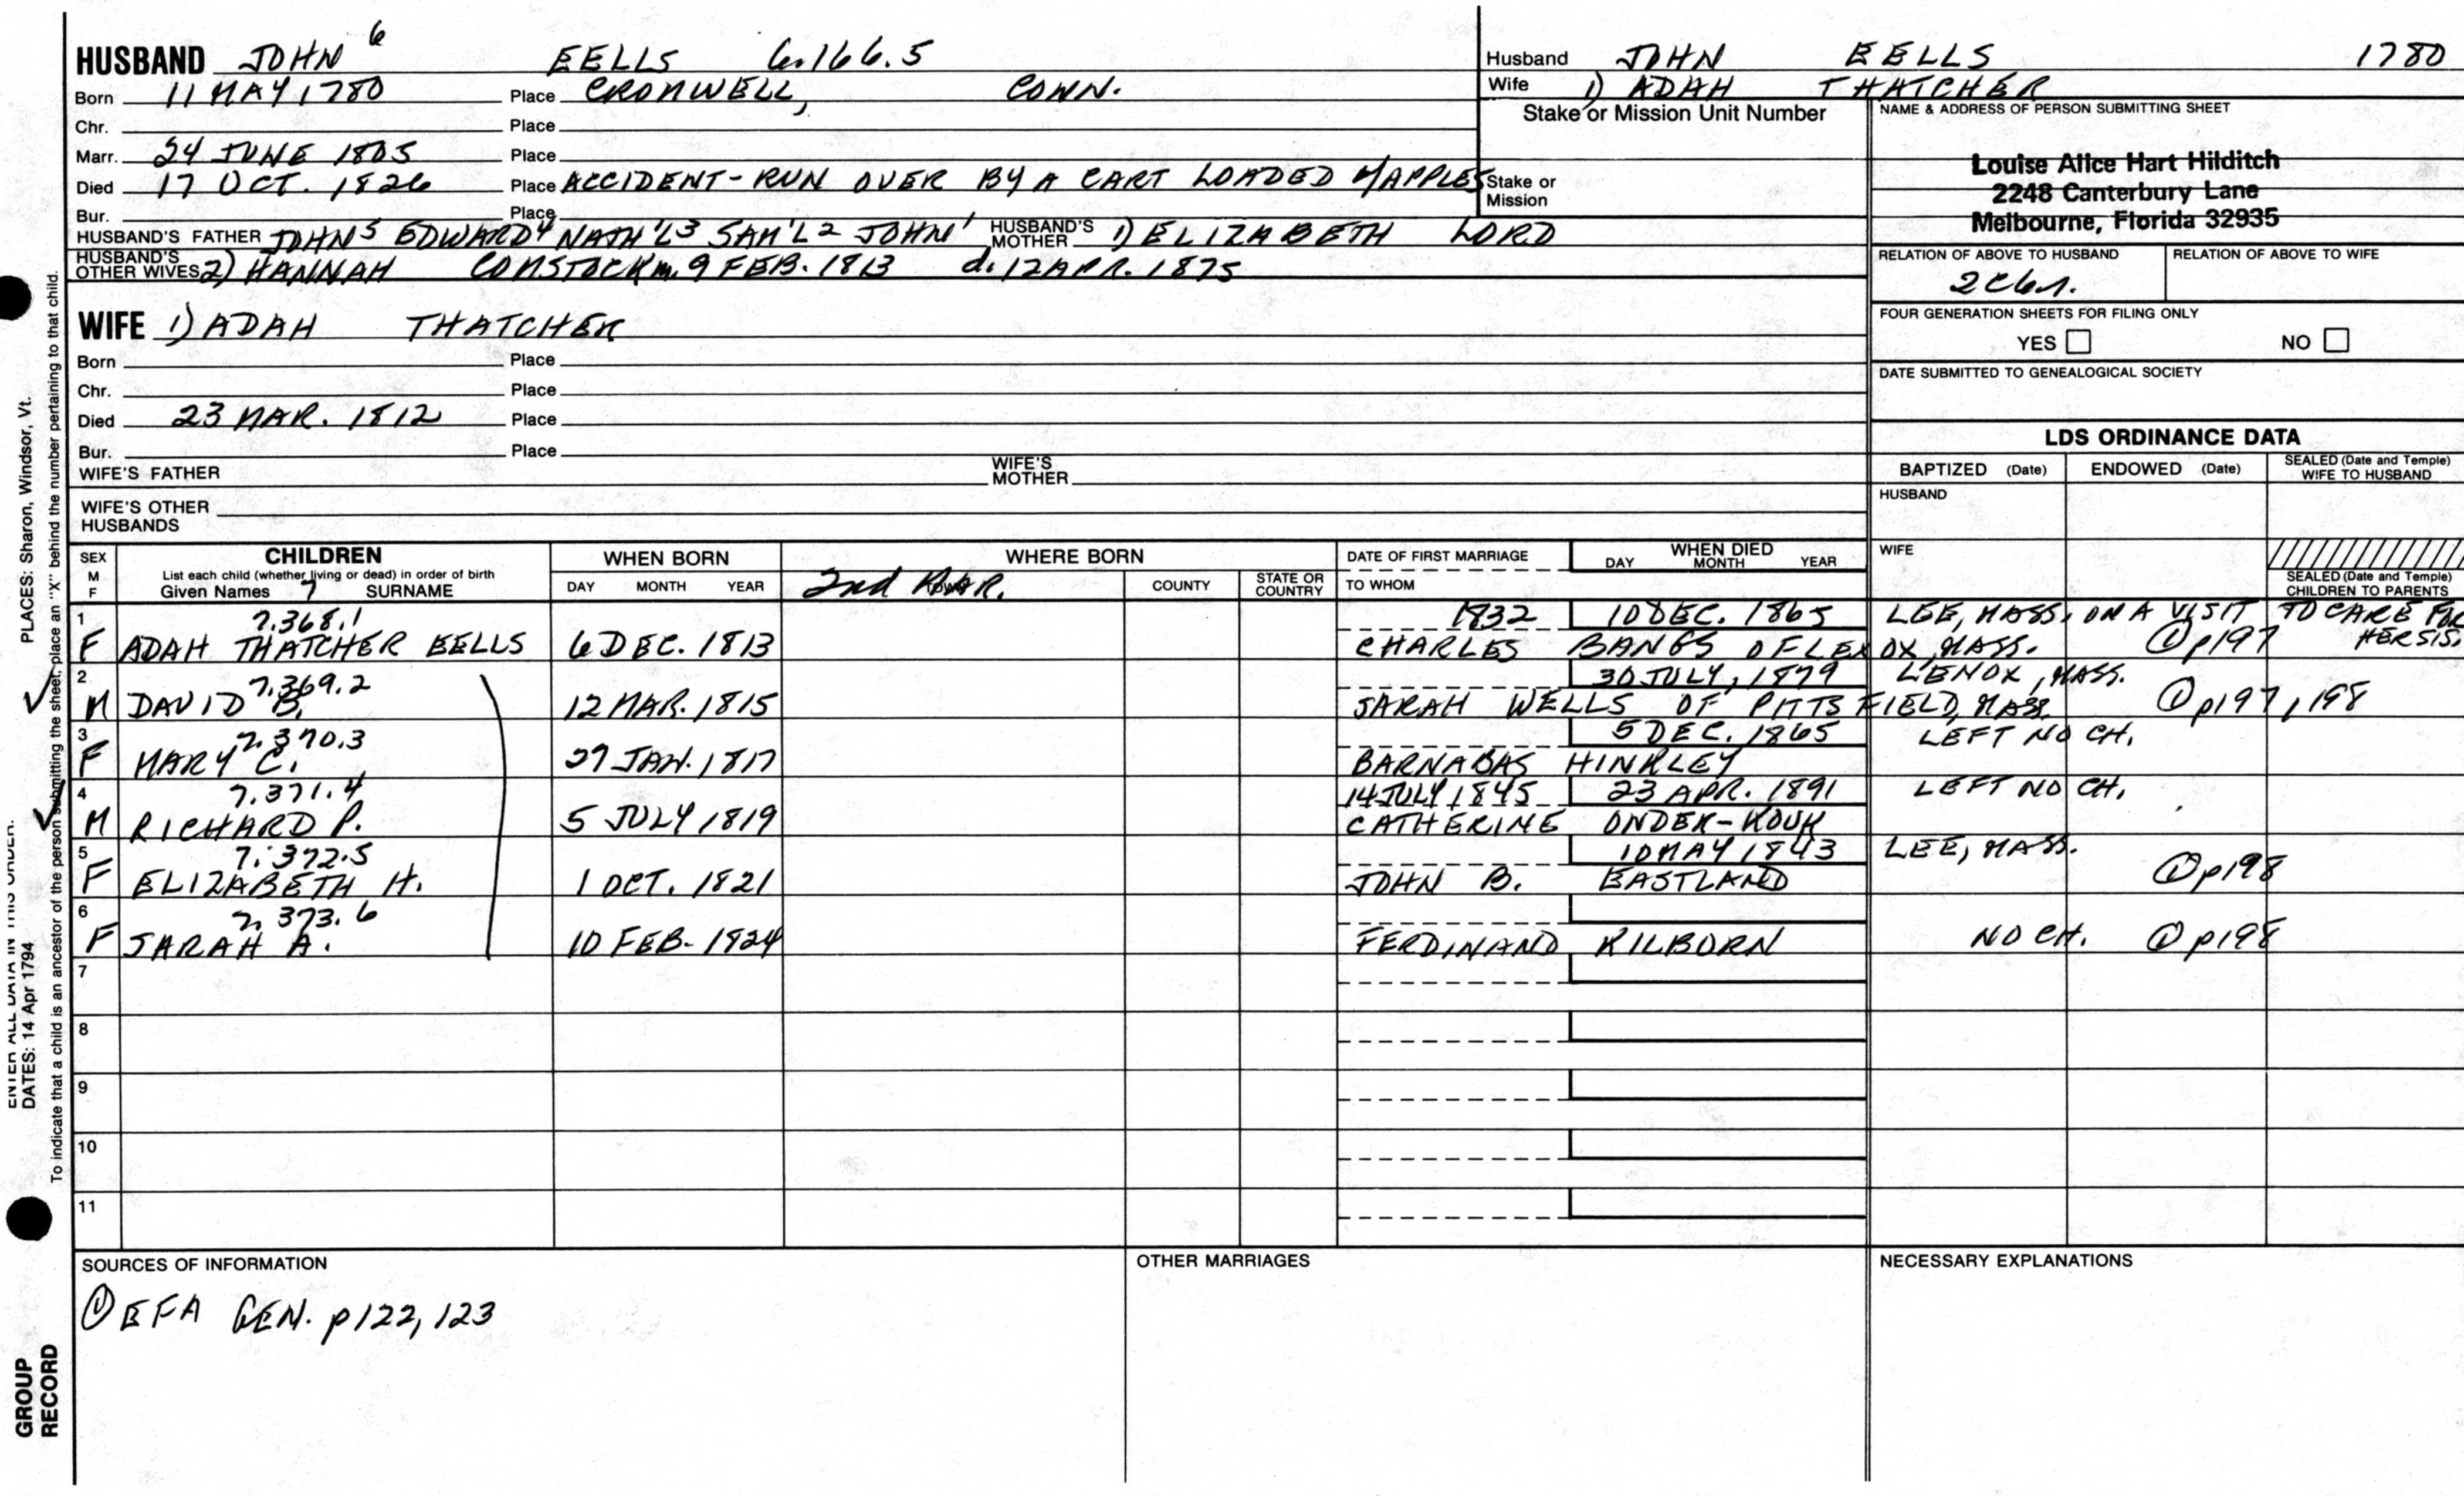 HUSBAND JOHN 6 EELLS 6.166.5
Born 11 MAY 1780 Place CROMWELL, CONN.
Chr. Place
Marr. 24 JUNE 1805 Place
Died 17 OCT. 1826 Place ACCIDENT-RUN OVER BY A CART LOADED W/APPLES
Bur. Place
HUSBAND'S FATHER JOHN5 EDWARD4 NATH'L3 SAM'L2 JOHN1 HUSBAND'S MOTHER 1) ELIZABETH LORD
HUSBAND'S OTHER WIVES 2) HANNAH COMSTOCK m. 9 FEB. 1813 d. 12 APR. 1875
Husband JOHN EELLS 1780
Wife 1) ADAH THATCHER
Stake or Mission Unit Number
Stake or Mission
NAME & ADDRESS OF PERSON SUBMITTING SHEET
Louise Alice Hart Hilditch
2248 Canterbury Lane
Melbourne, Florida 32935
RELATION OF ABOVE TO HUSBAND RELATION OF ABOVE TO WIFE
2C6r.
FOUR GENERATION SHEETS FOR FILING ONLY
YES NO
DATE SUBMITTED TO GENEALOGICAL SOCIETY
WIFE 1) ADAH THATCHER
Born Place
Chr. Place
Died 23 MAR. 1812 Place
Bur. Place
WIFE'S FATHER WIFE'S MOTHER
WIFE'S OTHER HUSBANDS
LDS ORDINANCE DATA
BAPTIZED (Date) ENDOWED (Date) SEALED (Date and Temple) WIFE TO HUSBAND
HUSBAND
WIFE
SEALED (Date and Temple) CHILDREN TO PARENTS
SEX M F
CHILDREN
List each child (whether living or dead) in order of birth
Given Names 7 SURNAME
WHEN BORN
DAY MONTH YEAR
WHERE BORN
2nd MAR. COUNTY STATE OR COUNTRY
DATE OF FIRST MARRIAGE
TO WHOM
WHEN DIED
DAY MONTH YEAR
1 7.368.1 1832 10 DEC. 1865 LEE, MASS. ON A VISIT TO CARE FOR HER SIS.
F ADAH THATCHER EELLS 6 DEC. 1813 CHARLES BANGS OF LENOX, MASS. ① p197
2 7.369.2 30 JULY, 1879 LENOX, MASS.
M DAVID B. 12 MAR. 1815 SARAH WELLS OF PITTSFIELD, MASS. ① p197, 198
3 7.370.3 5 DEC. 1865 LEFT NO CH.
F MARY C. 27 JAN. 1817 BARNABAS HINKLEY
4 7.371.4 14 JULY 1845 23 APR. 1891 LEFT NO CH.
M RICHARD P. 5 JULY 1819 CATHERINE ONDER-KOUK
5 7.372.5 10 MAY 1843 LEE, MASS.
F ELIZABETH H. 1 OCT. 1821 JOHN B. EASTLAND ① p198
6 7.373.6
F SARAH A. 10 FEB. 1824 FERDINAND KILBORN NO CH. ① p198
7
8
9
10
11
SOURCES OF INFORMATION
① EFA GEN. p122, 123
OTHER MARRIAGES
NECESSARY EXPLANATIONS
PLACES: Sharon, Windsor, Vt.
To indicate that a child is an ancestor of the person submitting the sheet, place an "X" behind the number pertaining to that child.
ENTER ALL DATA IN THIS ORDER:
DATES: 14 Apr 1794
GROUP
RECORD